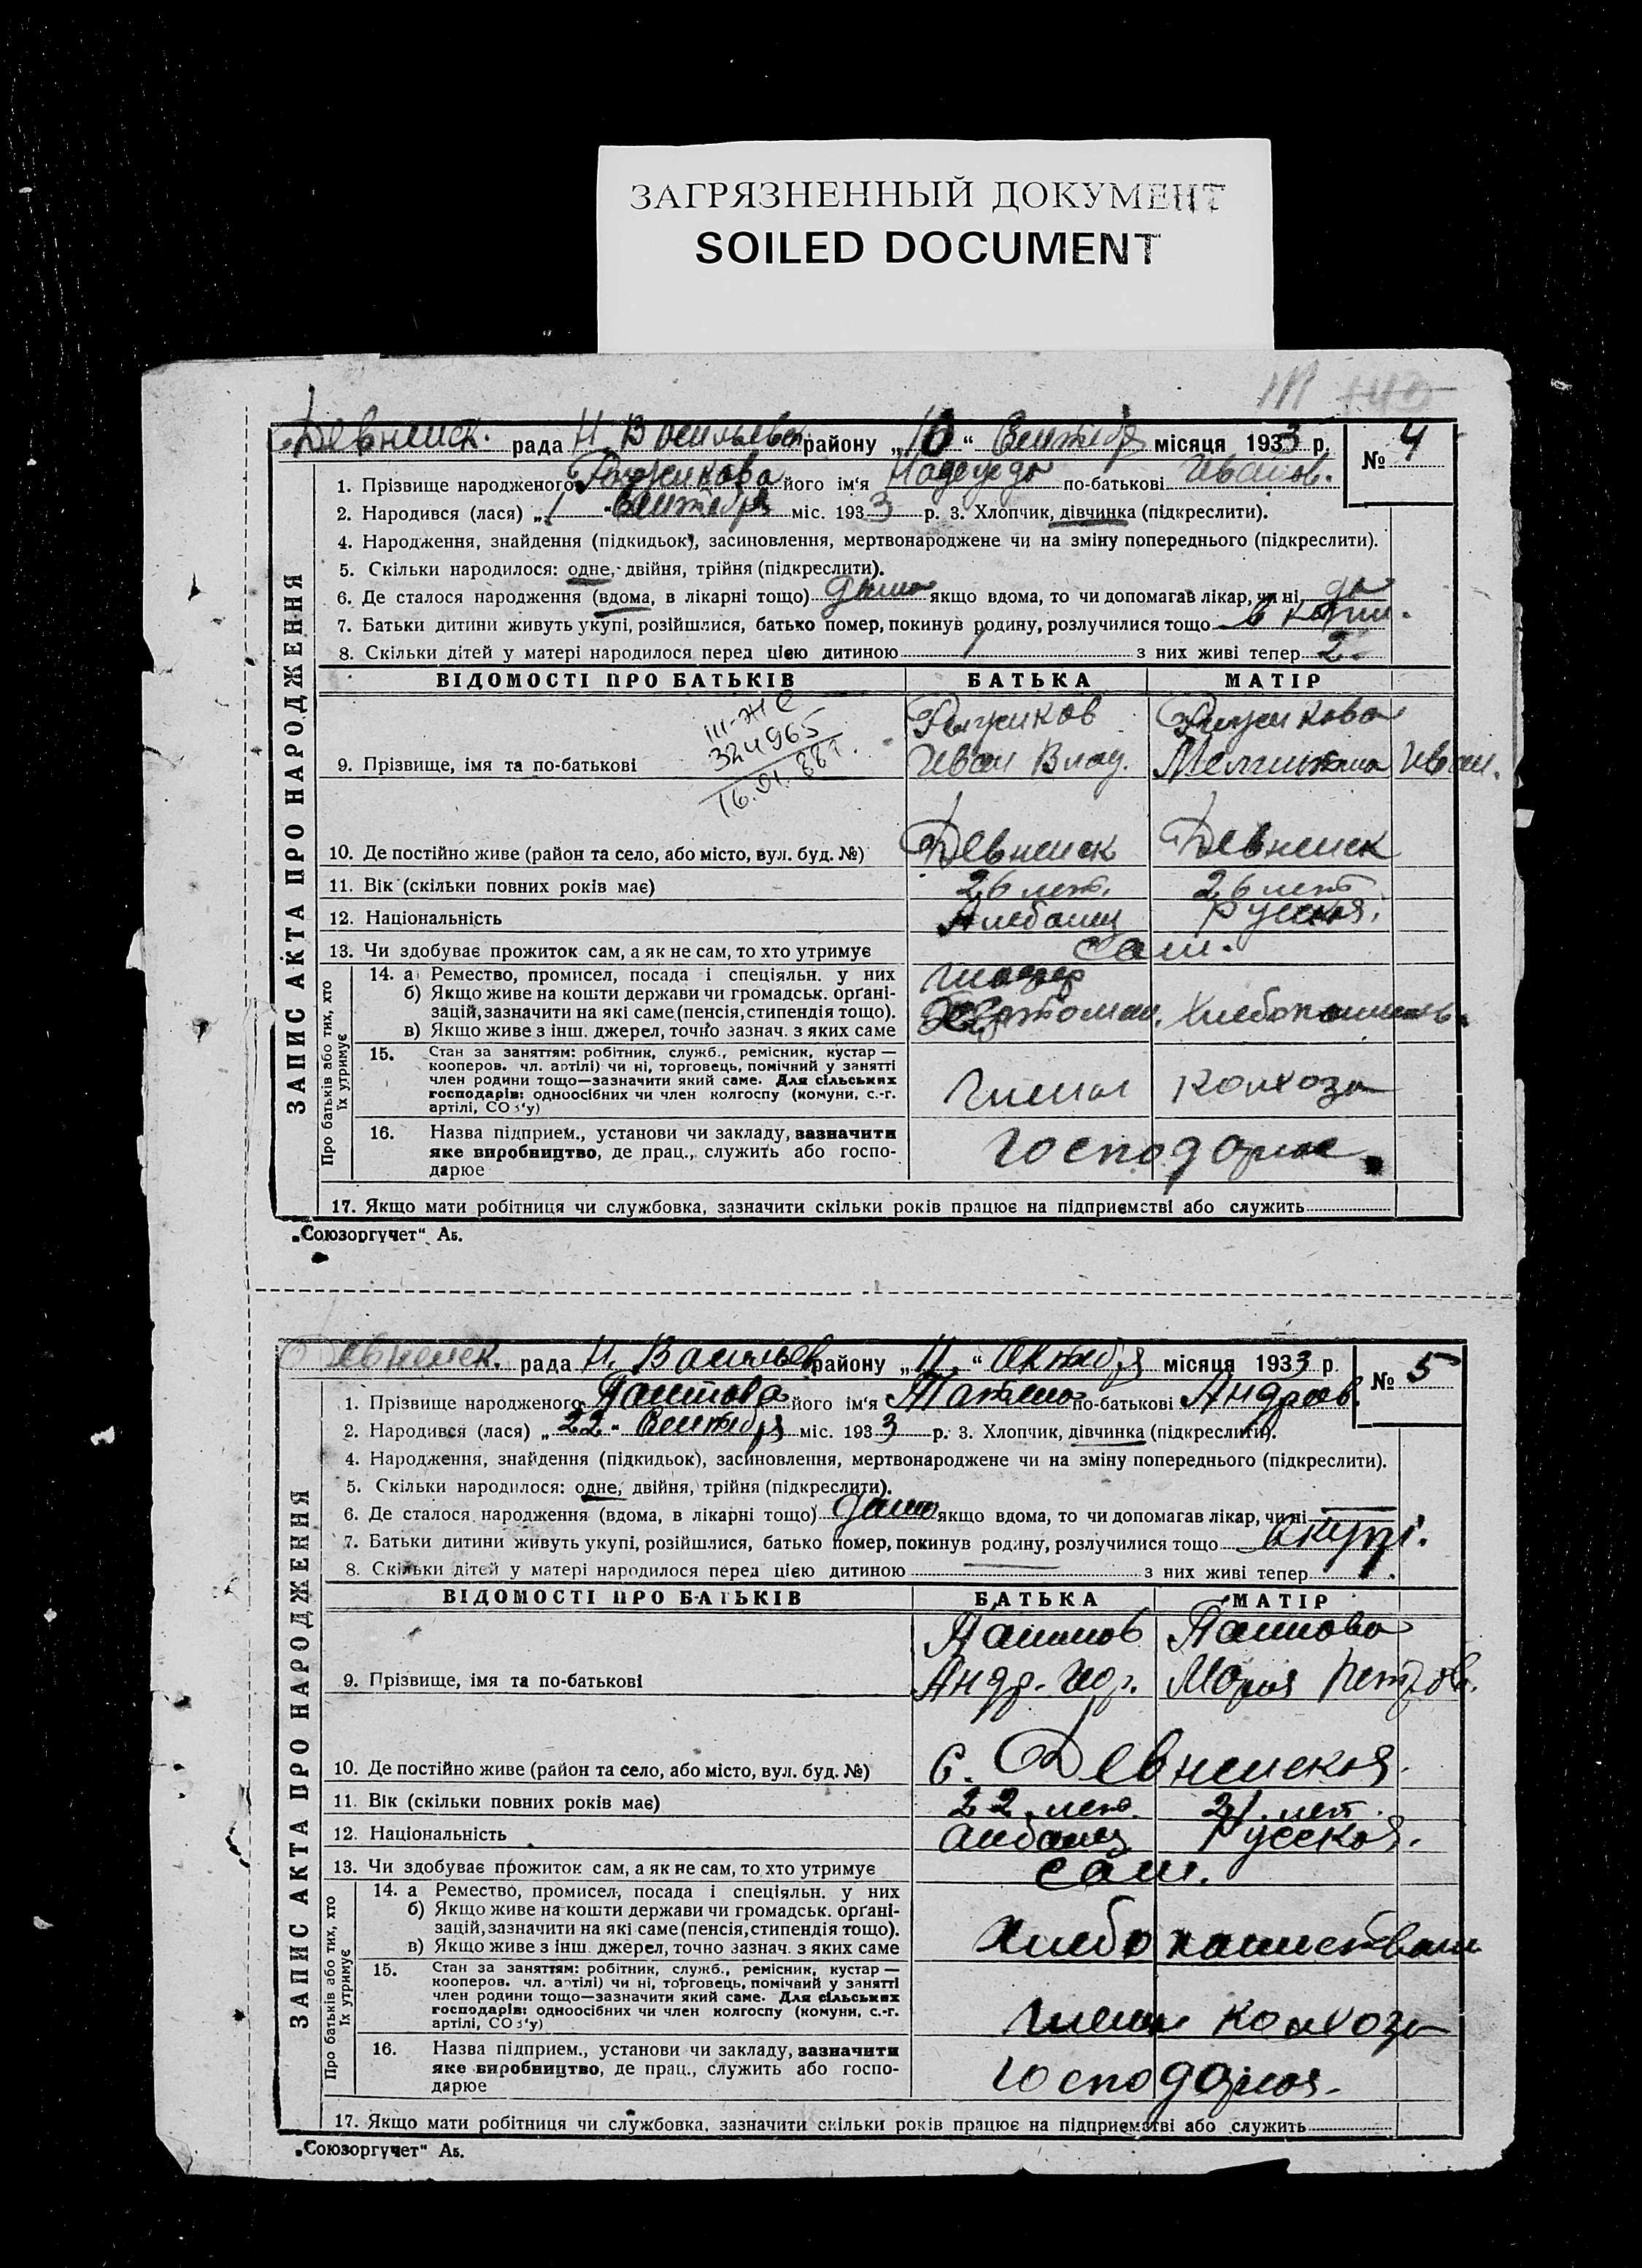 ЗАГРЯЗНЕННЫЙ ДОКУМЕНТ
SOILED DOCUMENT
Девнинск. рада Н. Васильевск. району „10“ Сентября місяця 1933 р. № 4
1. Прізвище народженого його ім'я Надежда по-батькові Иванов.
2. Народився (лася) „1 Сентября міс. 1933 р. 3. Хлопчик, дівчинка (підкреслити).
4. Народження, знайдення (підкидьок), засиновлення, мертвонароджене чи на зміну попереднього (підкреслити).
5. Скільки народилося: одне, двійня, трійня (підкреслити).
6. Де сталося народження (вдома, в лікарні тощо) дома якщо вдома, то чи допомагав лікар, чи ні да
7. Батьки дитини живуть укупі, розійшлися, батько помер, покинув родину, розлучилися тощо
8. Скільки дітей у матері народилося перед цією дитиною 1 з них живі тепер 2.
ЗАПИС АКТА ПРО НАРОДЖЕННЯ
ВІДОМОСТІ ПРО БАТЬКІВ БАТЬКА МАТІР
III-ЖС
324965
16.01.88г.
9. Прізвище, імя та по-батькові Иван Влад. Иван.
10. Де постійно живе (район та село, або місто, вул. буд. №) Девнинск Девнинск
11. Вік (скільки повних років має) 26 лет. 26 лет
12. Національність Албанец Русская.
13. Чи здобуває прожиток сам, а як не сам, то хто утримує сам.
Про батьків або тих, хто їх утримує
14. а) Ремество, промисел, посада і спеціяльн. у них
б) Якщо живе на кошти держави чи громадськ. орґані-
зацій, зазначити на які саме (пенсія, стипендія тощо).
в) Якщо живе з інш. джерел, точно зазнач. з яких саме
15. Стан за заняттям: робітник, служб., ремісник, кустар —
кооперов. чл. артілі) чи ні, торговець, помічний у занятті
член родини тощо—зазначити який саме. Для сільських
господарів: одноосібних чи член колгоспу (комуни, с.-г.
артілі, СОЗ'у)
член колхоза
16. Назва підприєм., установи чи закладу, зазначити
яке виробництво, де прац., служить або госпо-
дарює
17. Якщо мати робітниця чи службовка, зазначити скільки років працює на підприємстві або служить
„Союзоргучет“ Аб.
Девнинск. рада Н. Васильев. району „11.“ Октября місяця 1933 р. № 5
1. Прізвище народженого його ім'я по-батькові Андреев.
2. Народився (лася) „22“ Сентября міс. 1933 р. 3. Хлопчик, дівчинка (підкреслити).
4. Народження, знайдення (підкидьок), засиновлення, мертвонароджене чи на зміну попереднього (підкреслити).
5. Скільки народилося: одне, двійня, трійня (підкреслити).
6. Де сталося народження (вдома, в лікарні тощо) дома якщо вдома, то чи допомагав лікар, чи ні
7. Батьки дитини живуть укупі, розійшлися, батько помер, покинув родину, розлучилися тощо вкупі.
8. Скільки дітей у матері народилося перед цією дитиною з них живі тепер 1.
ЗАПИС АКТА ПРО НАРОДЖЕННЯ
ВІДОМОСТІ ПРО БАТЬКІВ БАТЬКА МАТІР
9. Прізвище, імя та по-батькові Мария Петров.
10. Де постійно живе (район та село, або місто, вул. буд. №) с. Девнинская.
11. Вік (скільки повних років має) 22. лет. 21. лет.
12. Національність албанец Русская.
13. Чи здобуває прожиток сам, а як не сам, то хто утримує сам.
Про батьків або тих, хто їх утримує
14. а Ремество, промисел, посада і спеціяльн. у них
б) Якщо живе на кошти держави чи громадськ. орґані-
зацій, зазначити на які саме (пенсія, стипендія тощо).
в) Якщо живе з інш. джерел, точно зазнач. з яких саме
хлебопашеством
15. Стан за заняттям: робітник, служб., ремісник, кустар —
кооперов. чл. артілі) чи ні, торговець, помічний у занятті
член родини тощо—зазначити який саме. Для сільських
господарів: одноосібних чи член колгоспу (комуни, с.-г.
артілі, СОЗ'у)
член колхоза
16. Назва підприєм., установи чи закладу, зазначити
яке виробництво, де прац., служить або госпо-
дарює
17. Якщо мати робітниця чи службовка, зазначити скільки років працює на підприємстві або служить
„Союзоргучет“ Аб.